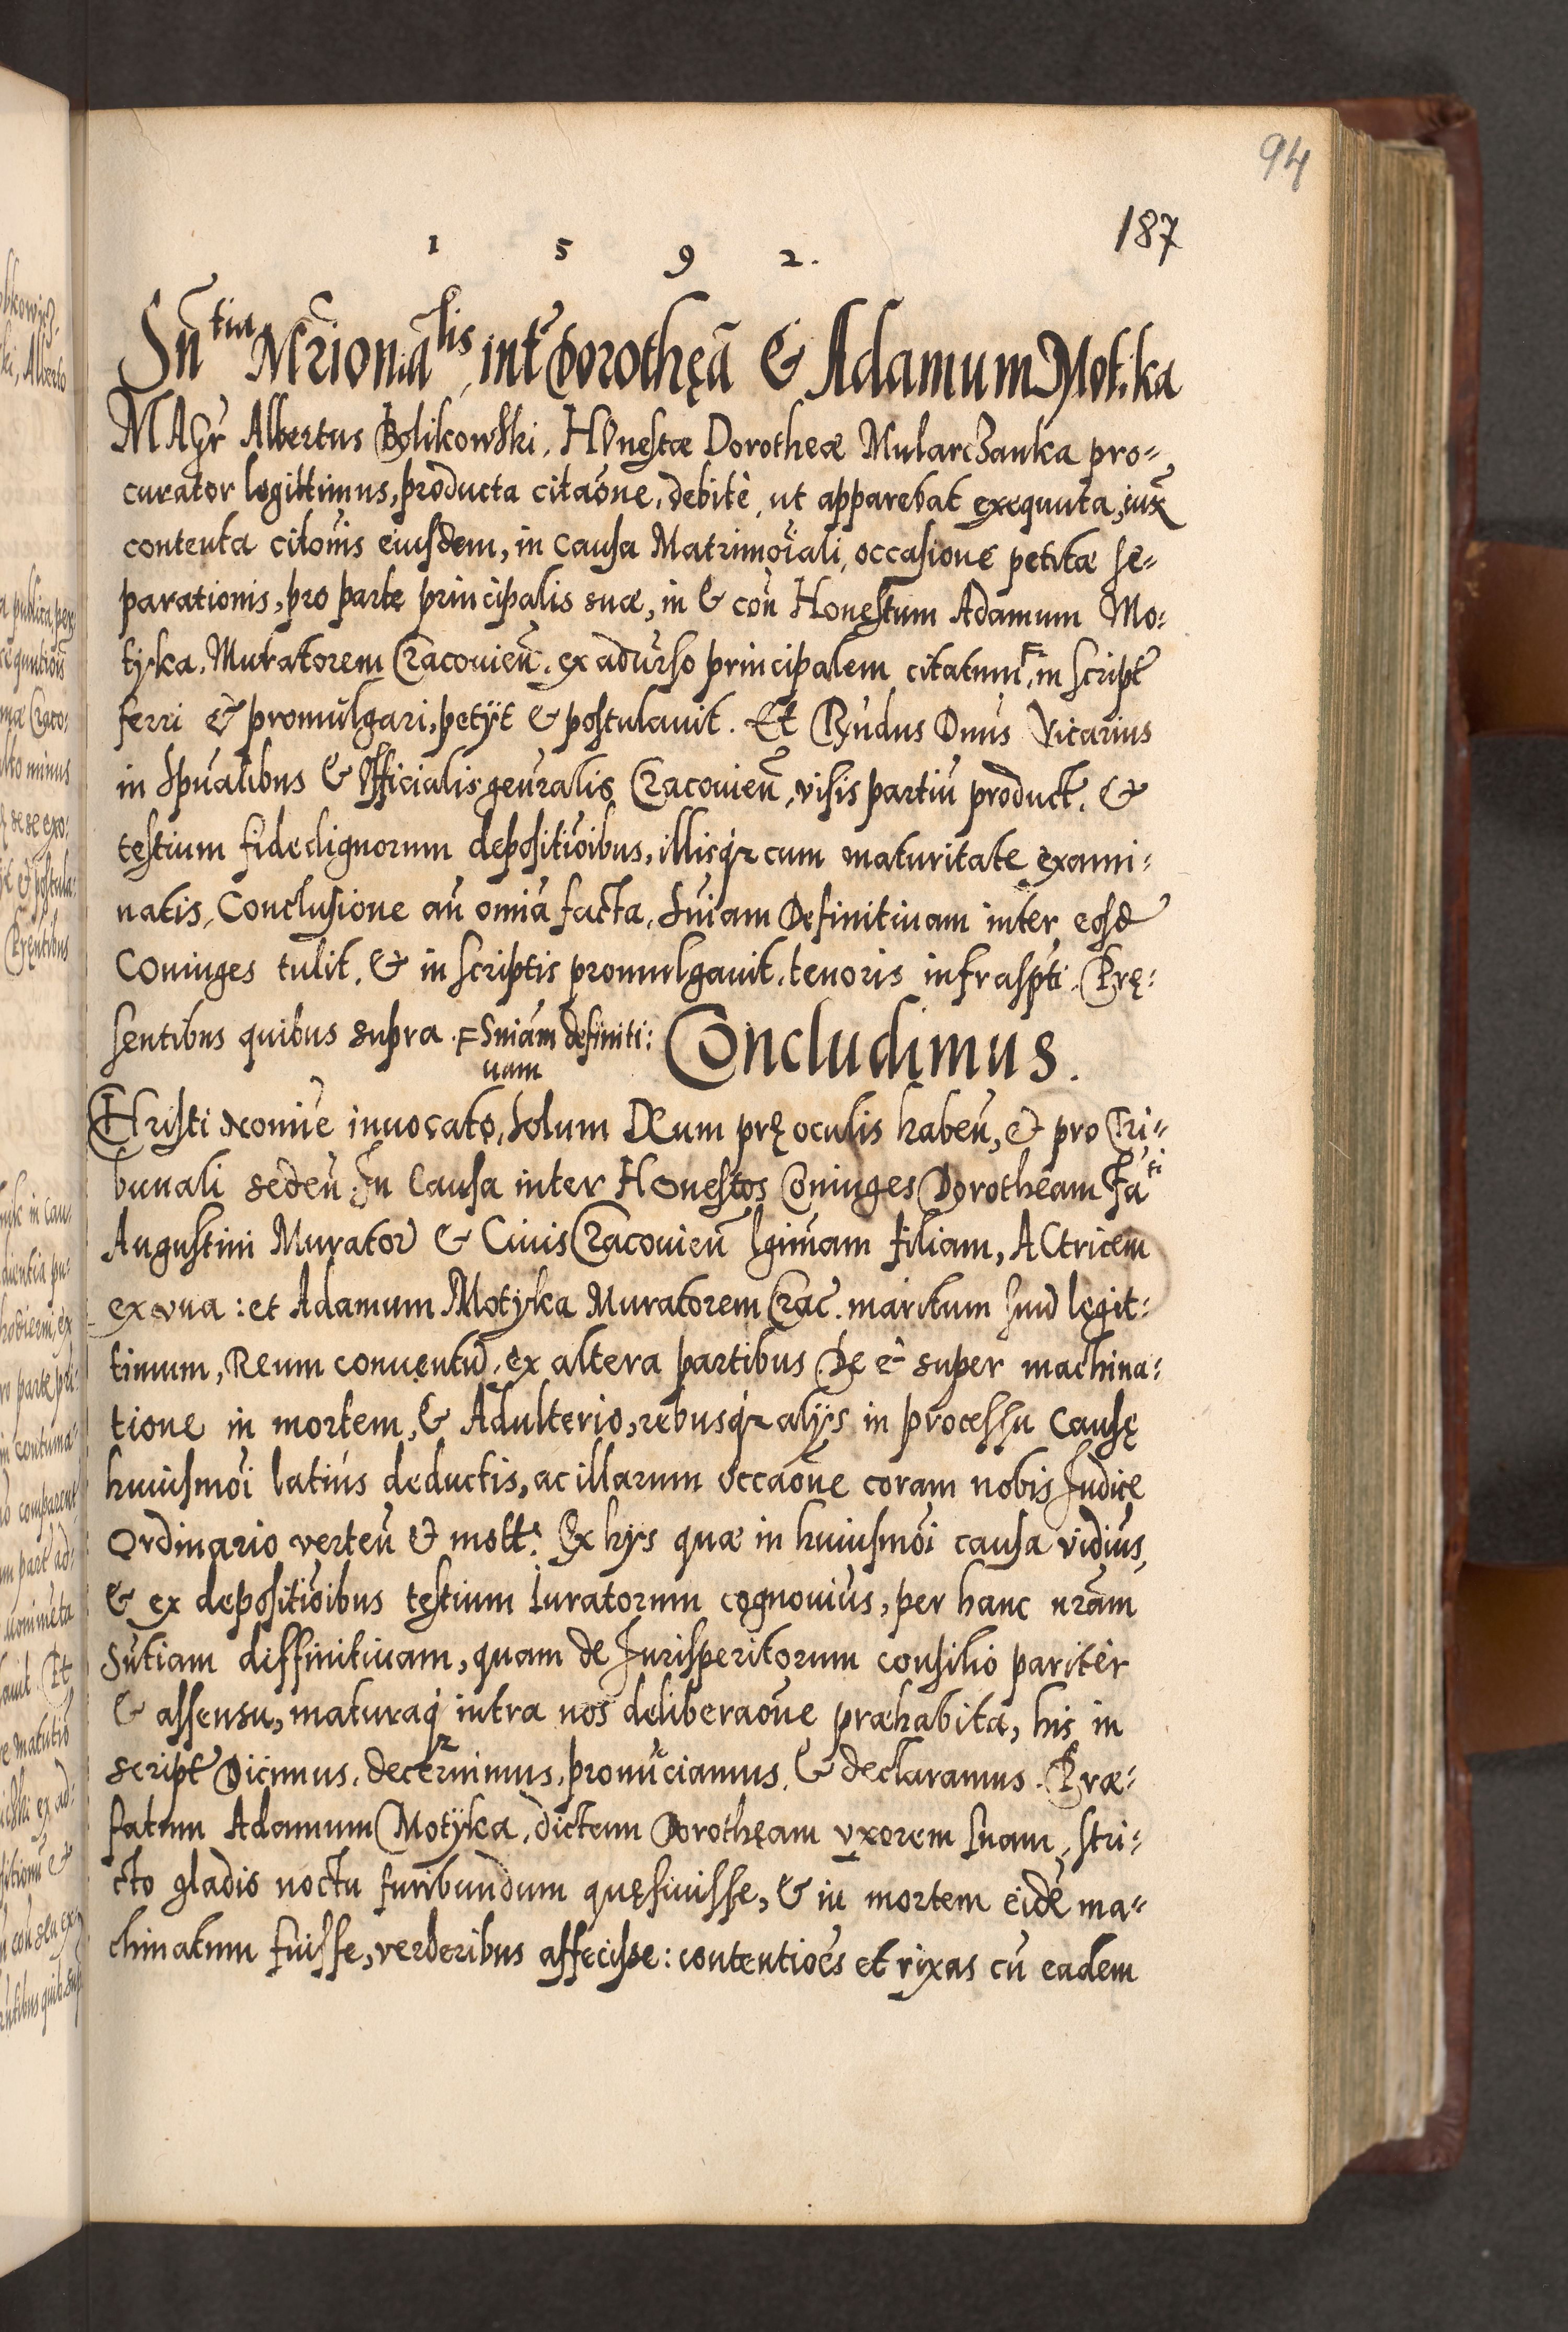 94
187
1 5 9 2.
Sn̄tia Mr̄ionialis, int̄ Dorothęā & Adamum Mot.ka
MAgr̄ Albertus Bolikowski, HOnestæ Dorotheæ Mularczanka pro-
curator legittimus, producta citaōne, debitè, ut apparebat exequuta, iux̄
contenta citōnis eiusdem, in Causa Matrimōiali, occasione petitæ se-
parationis, pro parte principalis suæ, in & con̄ Honestum Adamum Mo-
tyka. Muratorem Cracouien̄. ex adurso principalem citatum F, in script̄
ferri & promulgari, petÿt & postulauit. Et Rn̄dus Dn̄us Vicarius
in Spūalibus & Officialis gen̄ralis Cracouien̄, visis partiū product. &
testium fidedignorum depositiōibus, illisq́ꝫ cum maturitate exami-
natis, Conclusione an̄ omīa facta, Sn̄iam Definitiuam inter eosd̄
COniuges tulit, & in scriptis promulgauit, tenoris infrasp̄ti. Prę-
sentibus quibus supra. F Sn̄iam definiti:
uam
Concludimus.
CHristi nomīe inuocato, Solum DEum pręoculis haben̄, & pro Tri-
bunali seden̄ In Causa inter HOnestos Coniuges Dorotheam Fāti
Augustini Murator & Ciuis Cracouien̄ lgimam filiam, ACtricem
ex vna: et Adamum Motyka Muratorem Crac̄. maritum suū legit-
timum, Reum conuentū, ex altera partibus De & super machina-
tione in mortem, & Adulterio, rebusq́ꝫ alÿs in processu Causę
huiusmōi latius deductis, ac illarum occaōne coram nobis Judice
Ordinario verten̄ & mott. Ex hÿs quæ in huiusmōi causa vidiūs,
& ex depositiōibus testium iuratorum cognouiūs, per hanc nr̄am
Sn̄tiam diffinitiuam, quam de Jurisperitorum consilio pariter
& assensu, maturaq́ꝫ intra nos deliberaōne præhabita, his in
script̄ Dicimus, decernimus, pronūciamus, & declaramus. Præ-
fatum Adamum Motÿka, dictam Dorothęam vxorem suam, stri-
cto gladio noctu furibundum quęsiuisse, & in mortem eidē ma-
chinatum fuisse, verberibus affecisse: contentiōes et rixas cū eadem